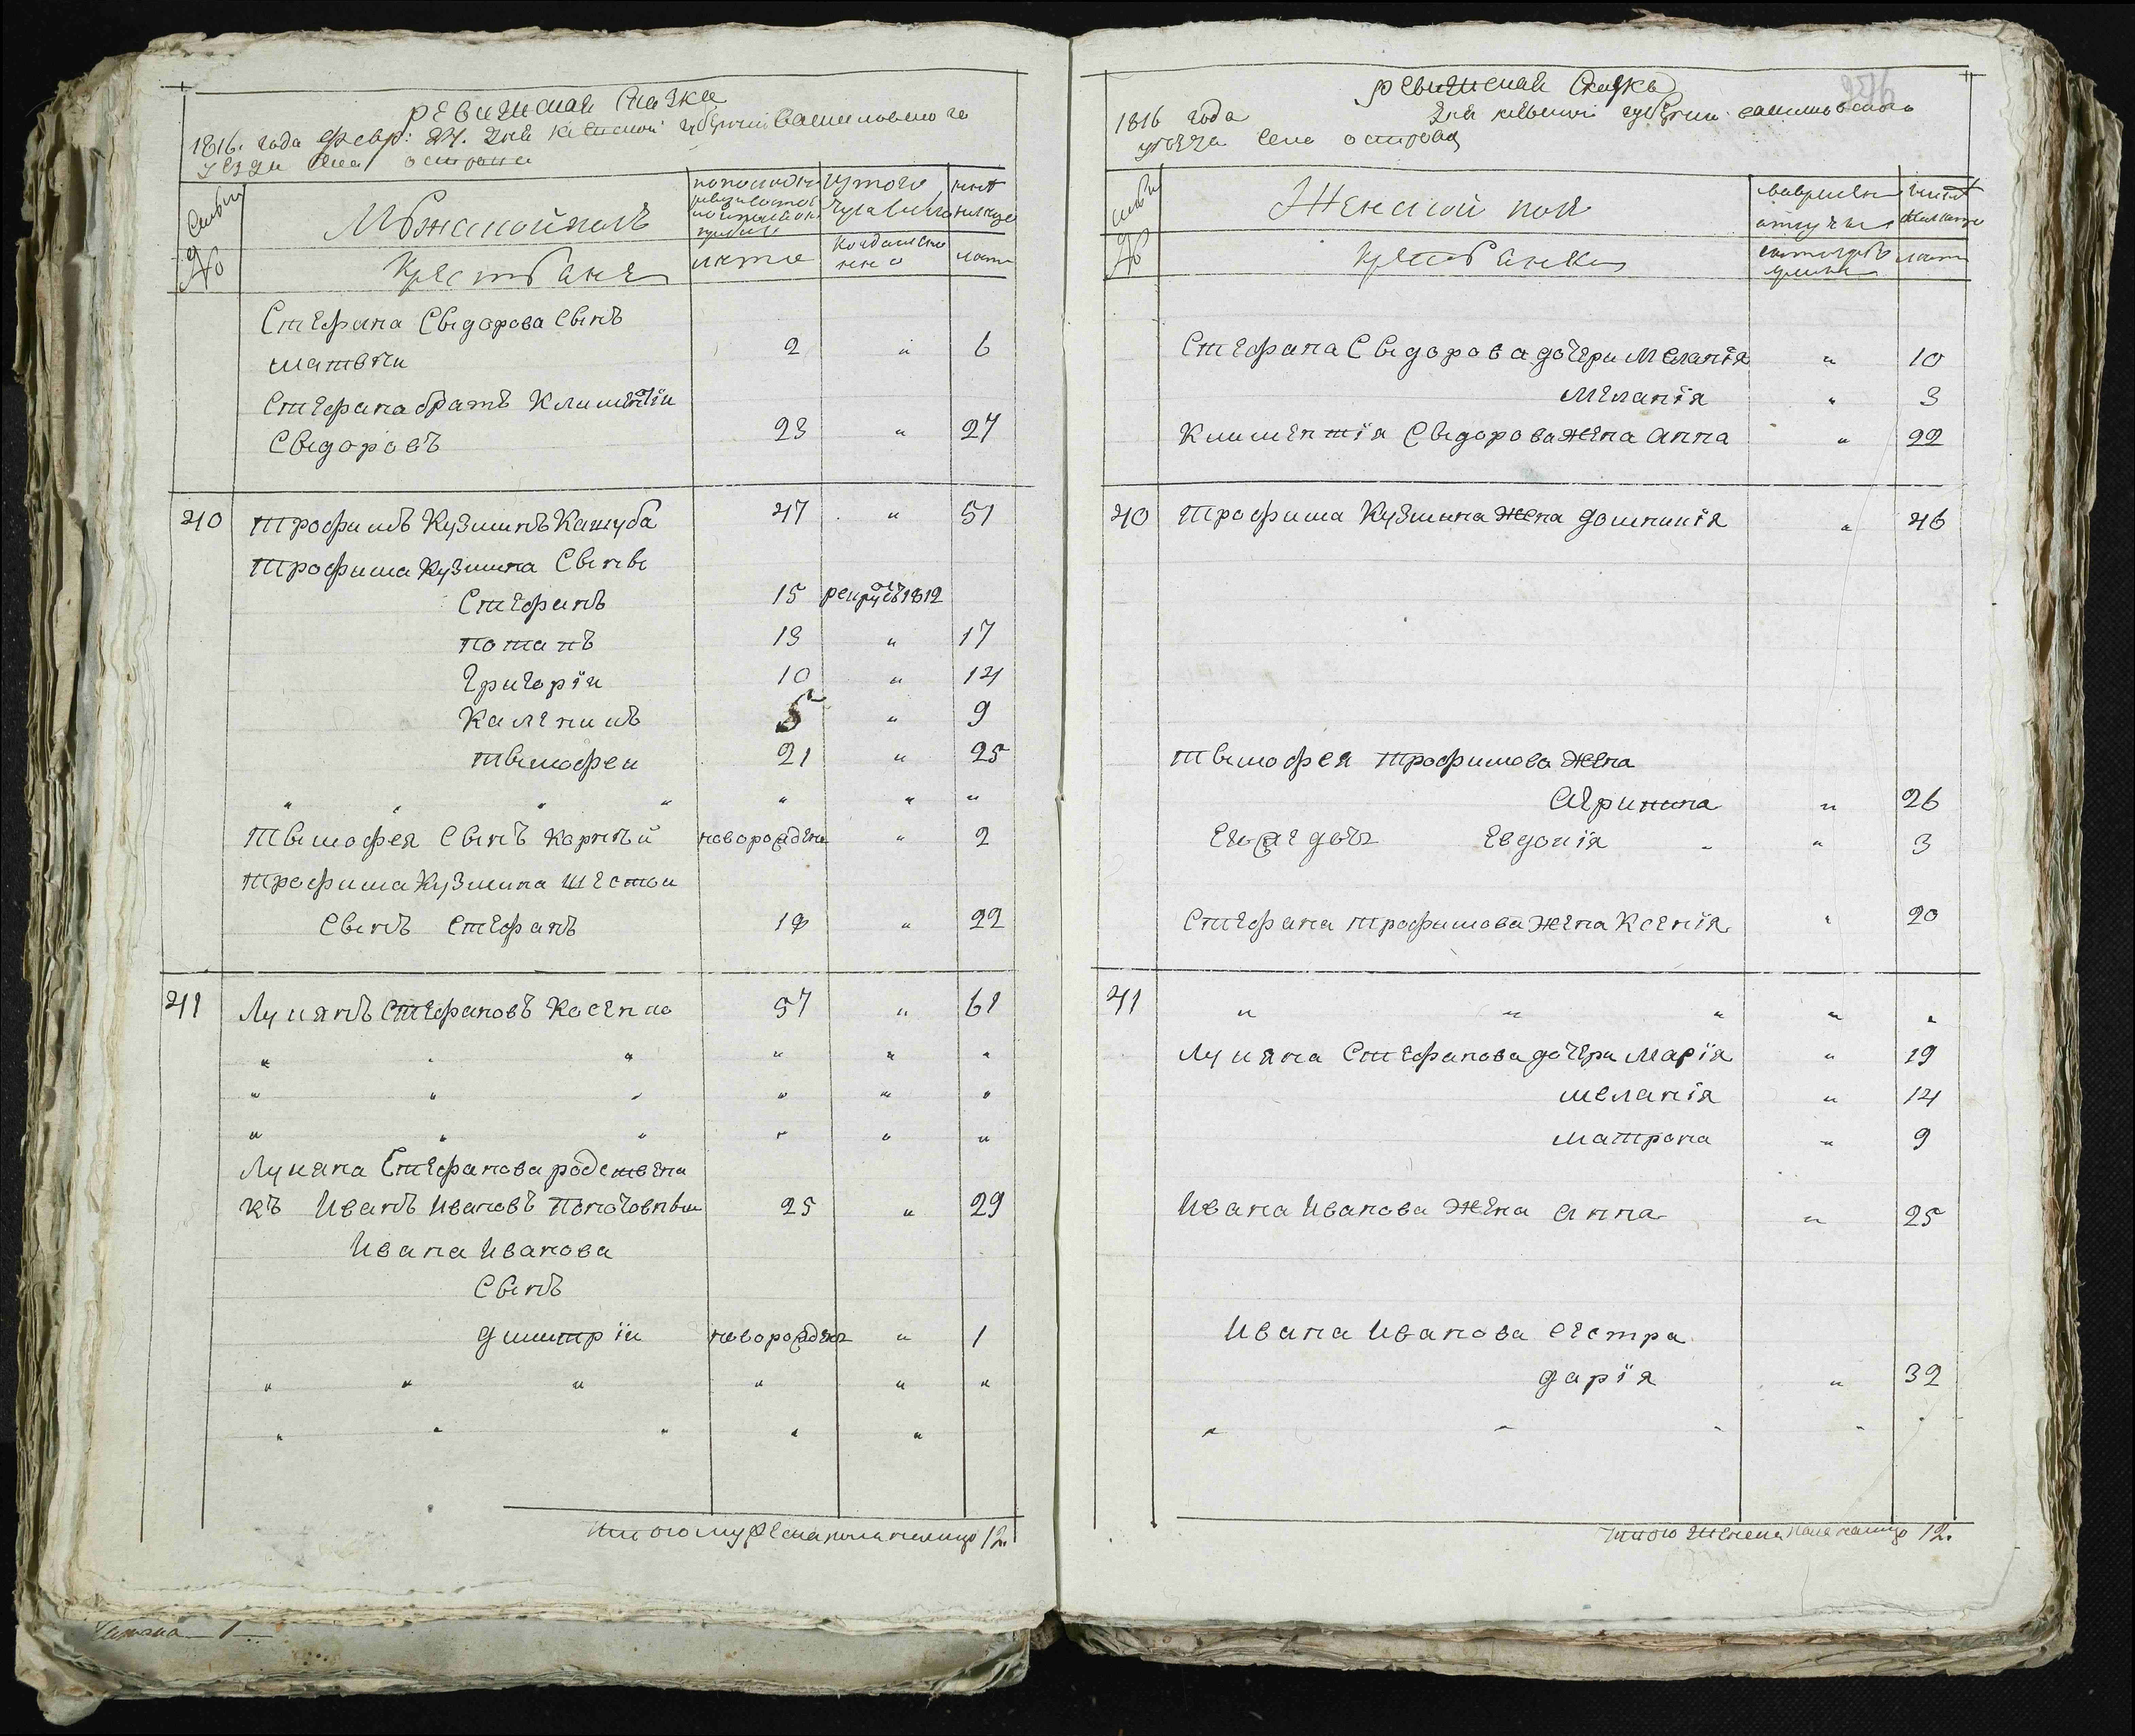 ревижская Сказка
1816. года февр: 24. дня киевской губернии васильковского
уезда села острова
Семьи
№
Мужеской полъ
Крестьяне
по последней
ревизии состояло
и после оной
прибыло
изъ того
число выбыло
ныне
на лицо
лета
когда именно
лета
Стефана Свідорова Сынъ
матвѣи 2 " 6
Стефана братъ Климентїи
Свідоровъ 23 " 27
40 Трофимъ Кузминъ Кашуба 47 " 51
Трофима Кузмина Сынве
Стефанъ 15 рекрутъ 1812
потапъ 13 " 17
Григорїи 10 " 14
Каленикъ 5 " 9
Тимофеи 21 " 25
" " " " " " "
Тимофея Сынъ Карпѣй новорожденъ " 2
Трофима Кузмина шестои
Сынъ Стефанъ 18 " 22
41 Лукянъ Стефановъ Косенко 57 " 61
" " " " " "
" " " " " "
" " " " " "
Лукяна Стефанова родственни
къ Иванъ Ивановъ 25 " 29
Ивана Иванова
Сынъ
дмитрїи новорожденъ " 1
" " " " " "
" " " " "
итого мужеска пола налицо 12.
ревижская Сказка
1816 года дня киевской губернии васильковского
уезда села острова
Семьи
№
Женской полъ
Крестьянки
во временной
отлучке
с которого
времени
ныне
на лицо
лета
Стефана Свідорова дочери Меланїя " 10
Меланїя " 3
Климентїя Свідорова жена Анна " 22
40 Трофима Кузмина жена домникїя " 46
Тимофея Трофимова жена
Агрипина " 26
Егожъ дочь Евдокїя " " 3
Стефана Трофимова жена Ксенїя " 20
41 " " " " "
Лукяна Стефанова дочери Марїя " 19
меланїя " 14
матрона " 9
Ивана Иванова жена анна " 25
Ивана Иванова сестра
дарїя " 32
" " " " "
Итого женска пола налицо 12.